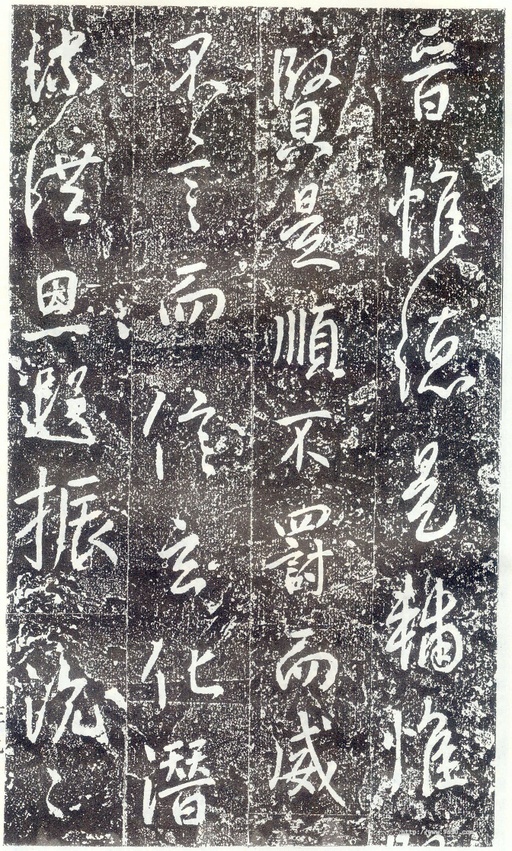 晉惟德是輔惟
賢是順不罰而威
不言而信玄化潛
流洪恩遐振沉〻